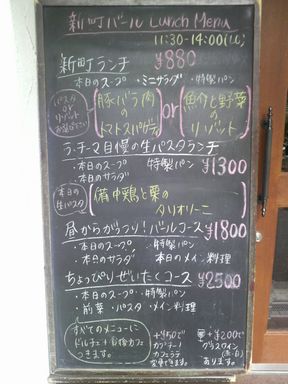 新町バール Lunch Menu
11:30-14:00(L.O)
新町ランチ ¥880
・本日のスープ ・ミニサラダ ・特製パン
パスタ or リゾット お選び下さい
豚バラ肉の トマトスパゲティ or 魚介と野菜の リゾット
ラ・チーマ自慢の生パスタランチ
・本日のスープ 特製パン ¥1300
・本日のサラダ
本日の 生パスタ
備中鶏と栗の タリオリーニ
昼からがっつり!バールコース ¥1800
・本日のスープ ・特製パン
・本日のサラダ ・メイン料理
ちょっぴりぜいたくコース ¥2500
・本日のスープ ・特製パン
・前菜 ・パスタ ・メイン料理
すべてのメニューに ドルチェ+食後カフェ つきます。
+¥50で カプチーノ カフェラテ 変更できます。
+¥200で グラスワイン (赤・白) あります。